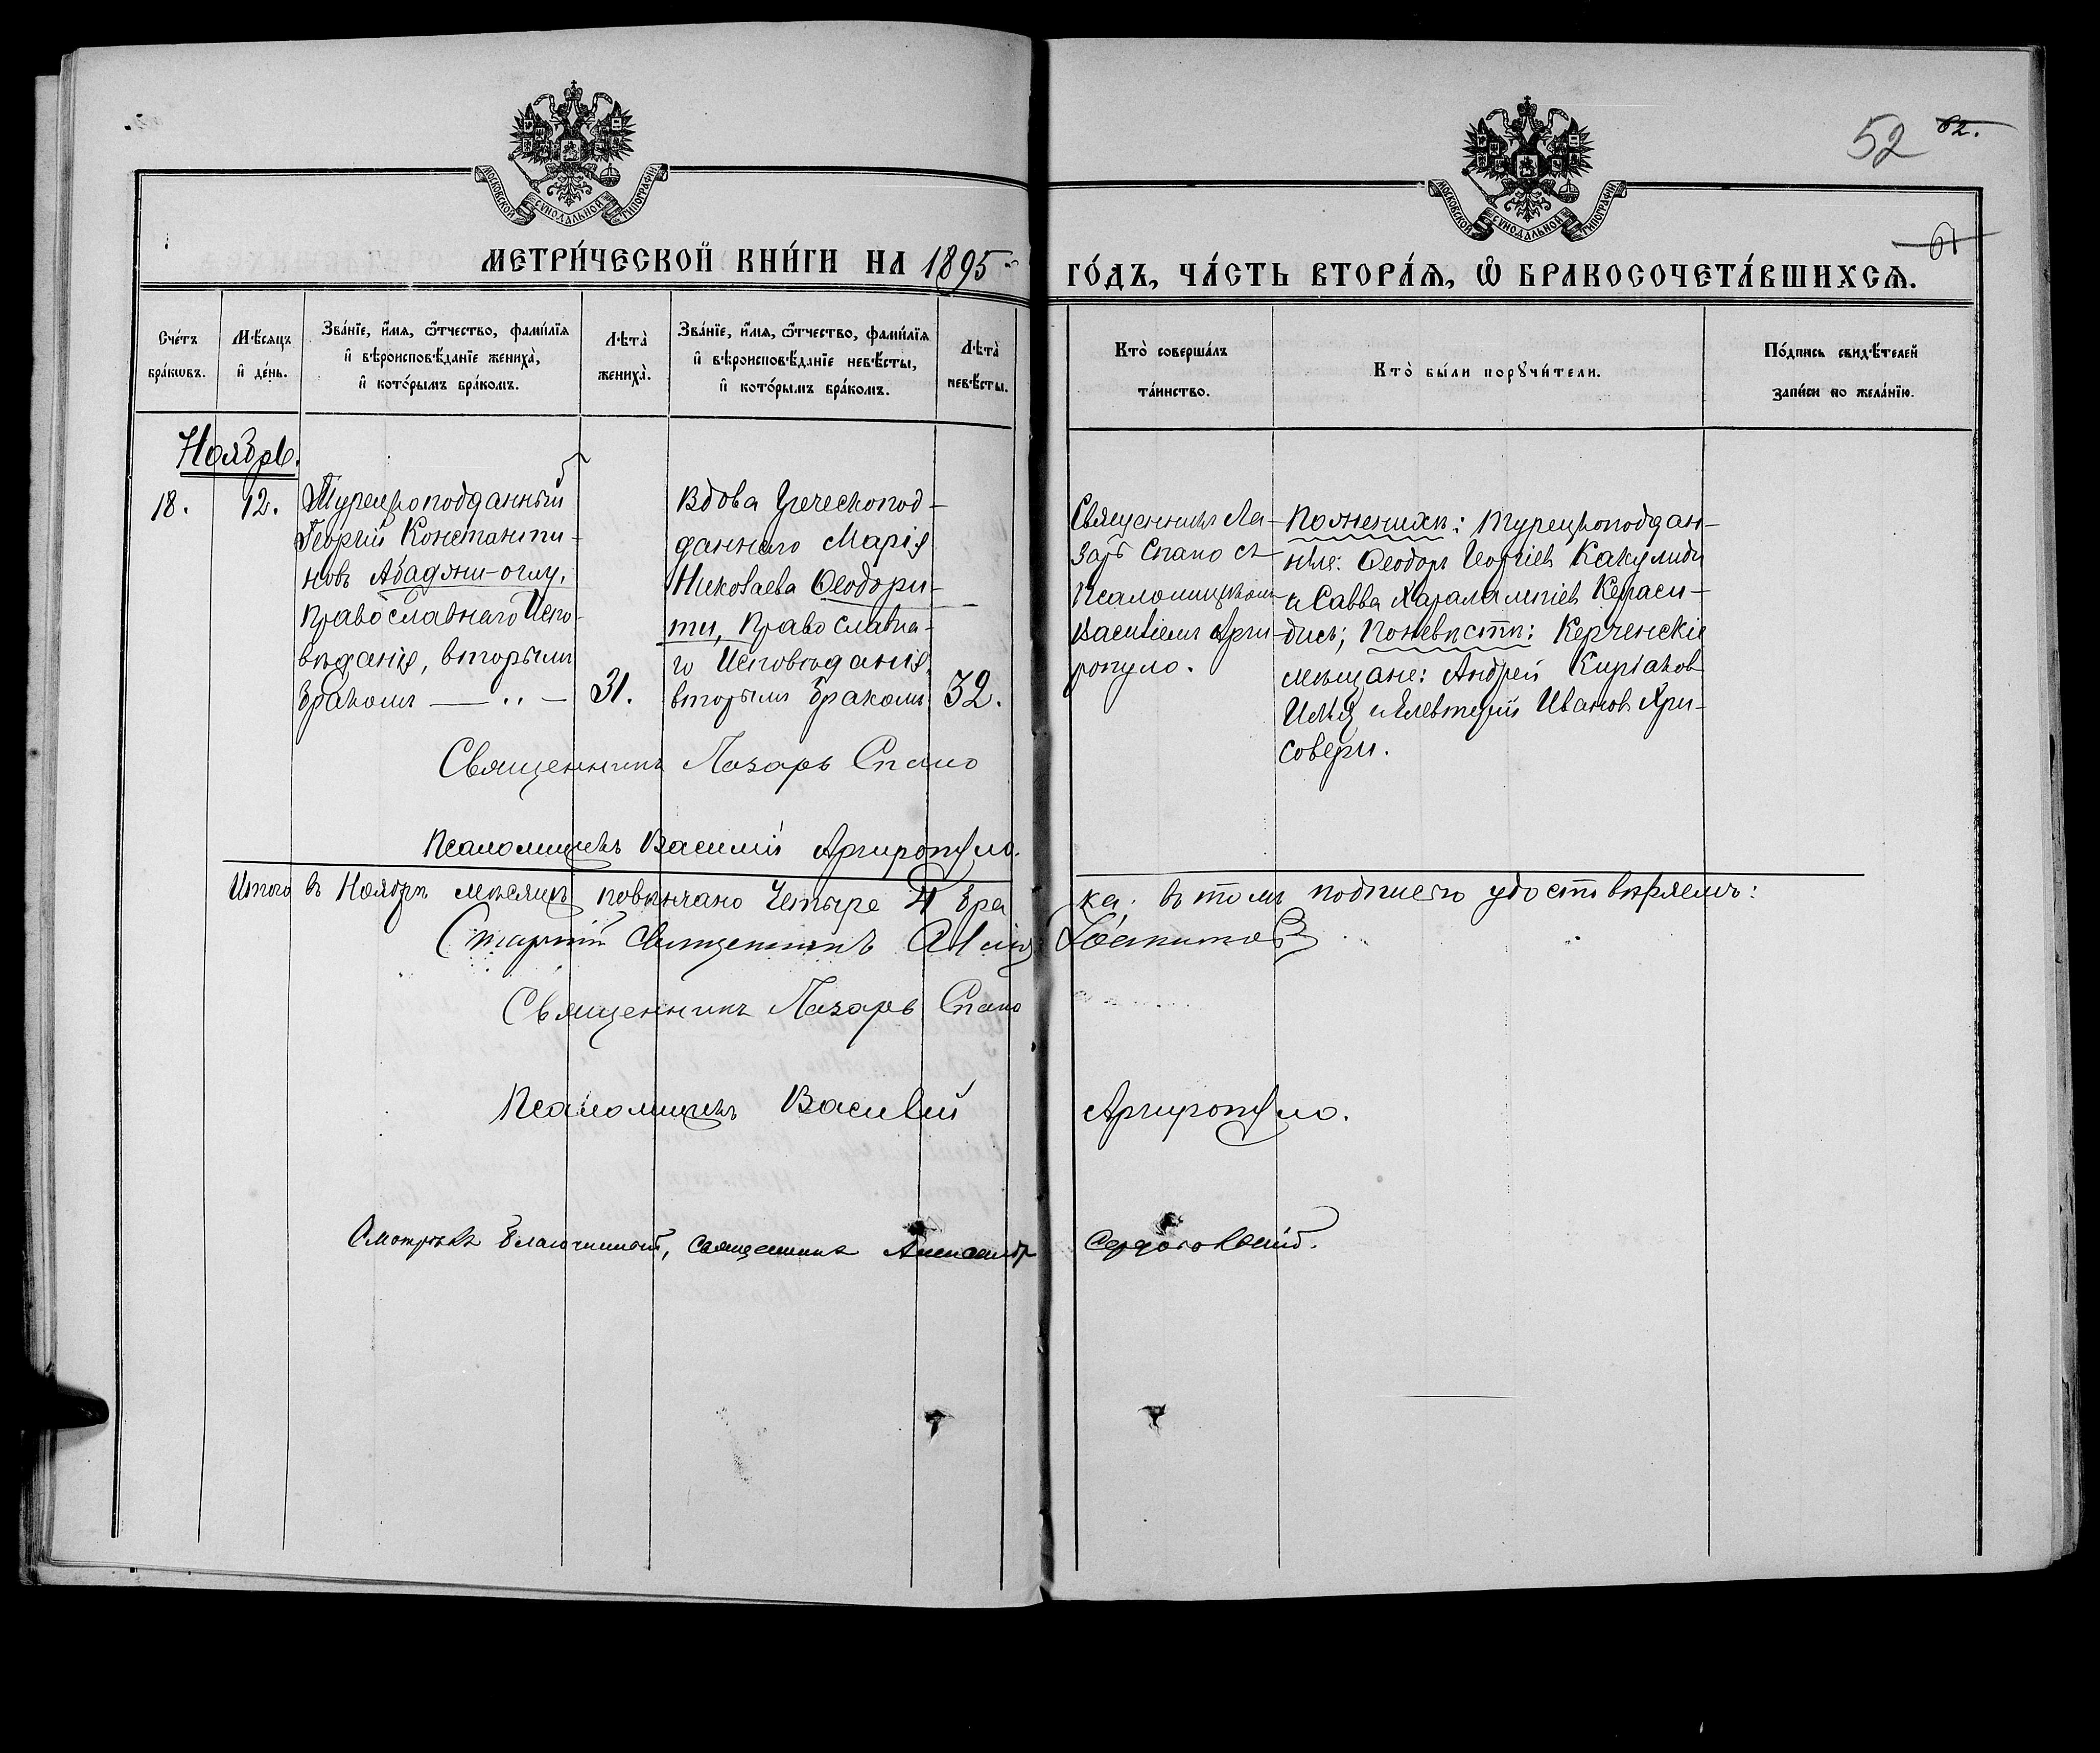 52 62.
61
МОСКОВСКОЙ СѴНОДАЛЬНОЙ ТИПОГРАФІИ
МОСКОВСКОЙ СѴНОДАЛЬНОЙ ТИПОГРАФІИ
МЕТРИ́ЧЕСКОЙ КНИ́ГИ НА 1895
ГО́ДЪ, ЧА́СТЬ ВТОРА́Ѧ, Ѽ БРАКОСОЧЕТА́ВШИХСѦ.
Сче́тъ
бра́кωвъ.
Мѣ́сяцъ
и҆ де́нь.
Зва́нїе, и҆́мѧ, ѻ҆́тчество, фами́лїѧ
и҆ вѣроисповѣ́данїе жениха̀,
и҆ кото́рымъ бра́комъ.
Лѣта̀
жениха̀.
Зва́нїе, и҆́мѧ, ѻ҆́тчество, фами́лїѧ
и҆ вѣроисповѣ́данїе невѣ́сты,
и҆ кото́рымъ бра́комъ.
Лѣта̀
невѣ́сты.
Кто̀ соверша́лъ
та́инство.
Кто̀ бы́ли порꙋчи́тели.
По́дпись свидѣ́телей
за́писи по жела́нїю.
Ноябрь.
18.
12.
Турецкоподданный
Георгій Константи-
новъ Абадяни-оглу,
Православнаго Испо-
вѣданія, вторымъ
бракомъ — „ —
31.
Вдова Греческопод-
даннаго Марія
Николаева Ѳеодори-
ти, Православна-
го Исповѣданія,
вторымъ бракомъ
32.
Священникъ Ла-
зарь Спано съ
Псаломщикомъ
Василіемъ Арги-
ропуло.
По женихѣ: Турецкоподдан-
ные: Ѳеодоръ Георгіевъ Какулиди
и Савва Харалампіевъ Кераси-
дисъ; По невѣстѣ: Керченскіе
мѣщане: Андрей Киріаковъ
Илья и Елевтерій Ивановъ Хри-
совери.
Священникъ Лазарь Спано
Псаломщикъ Василій Аргиропуло.
Итого въ Ноябрѣ мѣсяцѣ повѣнчано Четыре 4 бра
ка; въ томъ подписью удостовѣряемъ:
Старшій Священникъ
Священникъ Лазарь Спано
Псаломщикъ Василій Аргиропуло.
Смотрѣлъ Благочинный, Священникъ Александръ Сердобольскій.